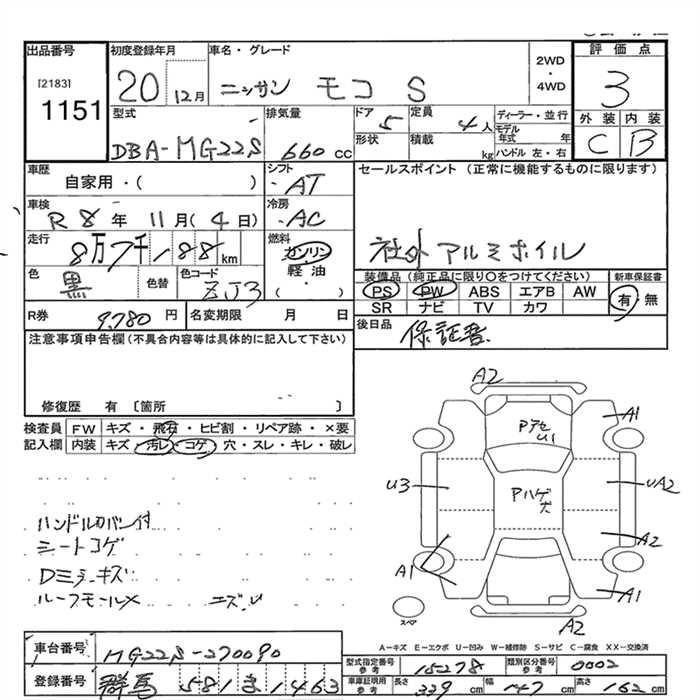 出品番号
[2183]
1151
初度登録年月
20
12月
車名・グレード
ニッサン モコ S
2WD
・
4WD
評価点
3
外装 内装
C B
型式
DBA-MG22S
排気量
660 cc
ドア
5
定員
4人
形状
積載
kg
ディーラー・並行
モデル年式 年
ハンドル 左・右
車歴
自家用・( )
シフト
AT
車検
R 8 年 11 月 ( 4 日)
冷房
AC
走行
8万7千188 km
燃料
ガソリン
軽油・
( )
色
黒
色替
色コード
ZJ3
セールスポイント (正常に機能するものに限ります)
社外アルミホイル
装備品 (純正品に限り○をつけてください)
新車保証書
PS PW ABS エアB AW
SR ナビ TV カワ
有・無
R券
9,780 円
名変期限 月 日
後日品
保証書
注意事項申告欄(不具合内容等は具体的に記入して下さい)
修復歴 有 〔箇所 〕
検査員記入欄
FW キズ・飛石・ヒビ割・リペア跡・×要
内装 キズ・汚レ・コゲ・穴・スレ・キレ・破レ
ハンドルカバー付
シートコゲ
Dミラーキズ
ルーフモールメ
A2
A1
Pアセ
U1
U3
UA2
Pハゲ
穴
A2
A1
A1
スペア
A2
A-キズ E-エクボ U-凹み W-補修跡 S-サビ C-腐食 XX-交換済
車台番号
MG22S-270090
登録番号
群馬 581 ま 1463
型式指定番号
参考
15278
類別区分番号
参考
0002
車庫証明用
参考
長さ
339 cm
幅
147 cm
高さ
162 cm